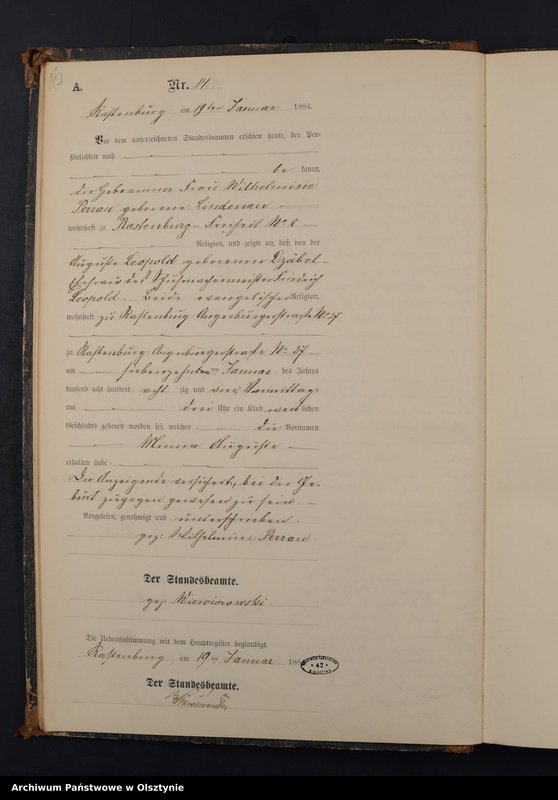 15
A.
Nr. 14
Rastenburg am 19ten Januar 1884.
Vor dem unterzeichneten Standesbeamten erschien heute, der Per-
sönlichkeit nach
be kannt,
die Hebeamme Frau Wilhelmine
Perrau geborene Lindenau
wohnhaft zu Rastenburg - Freiheit No 8
Religion, und zeigte an, daß von der
Auguste Leopold geborenen Dzäbel -
Ehefrau des Schuhmachermeister Friedrich
Leopold. Beide evangelischer Religion,
wohnhaft zu Rastenburg Angerburgerstraße No 27
zu Rastenburg Angerburgerstraße No 27
am siebenzehnten Januar des Jahres
tausend acht hundert acht zig und vier, Vormittags
um drei Uhr ein Kind weiblichen
Geschlechts geboren worden sei, welches die Vornamen
Minna Auguste
erhalten habe.
Die Anzeigende versichert, bei der Ge-
burt zugegen gewesen zu sein
Vorgelesen, genehmigt und unterschrieben.
gez: Wilhelmine Perrau.
Der Standesbeamte.
gez: Wiewiorowski.
Die Uebereinstimmung mit dem Hauptregister beglaubigt.
Rastenburg, am 19ten Januar 188
42
Der Standesbeamte.
Wiewiorowski
Archiwum Państwowe w Olsztynie